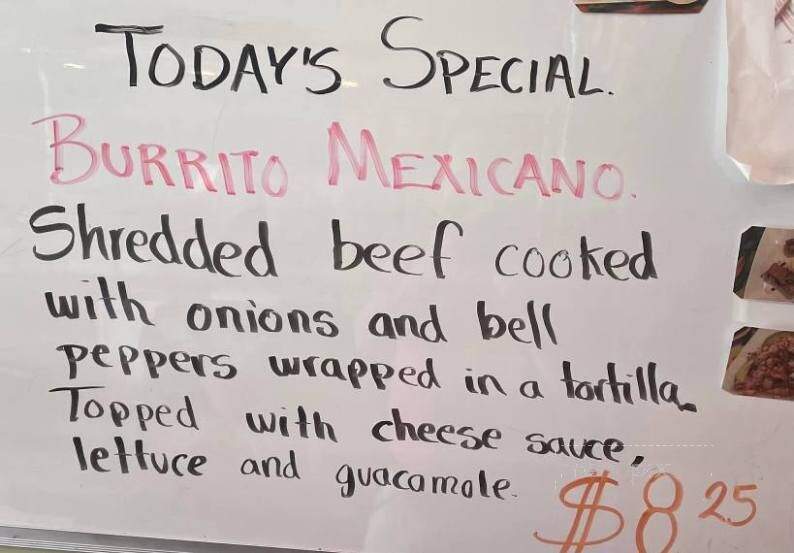 TODAY'S SPECIAL.
BURRITO MEXICANO.
Shredded beef cooked
with onions and bell
peppers wrapped in a tortilla.
Topped with cheese sauce,
lettuce and guacamole.
$8 25